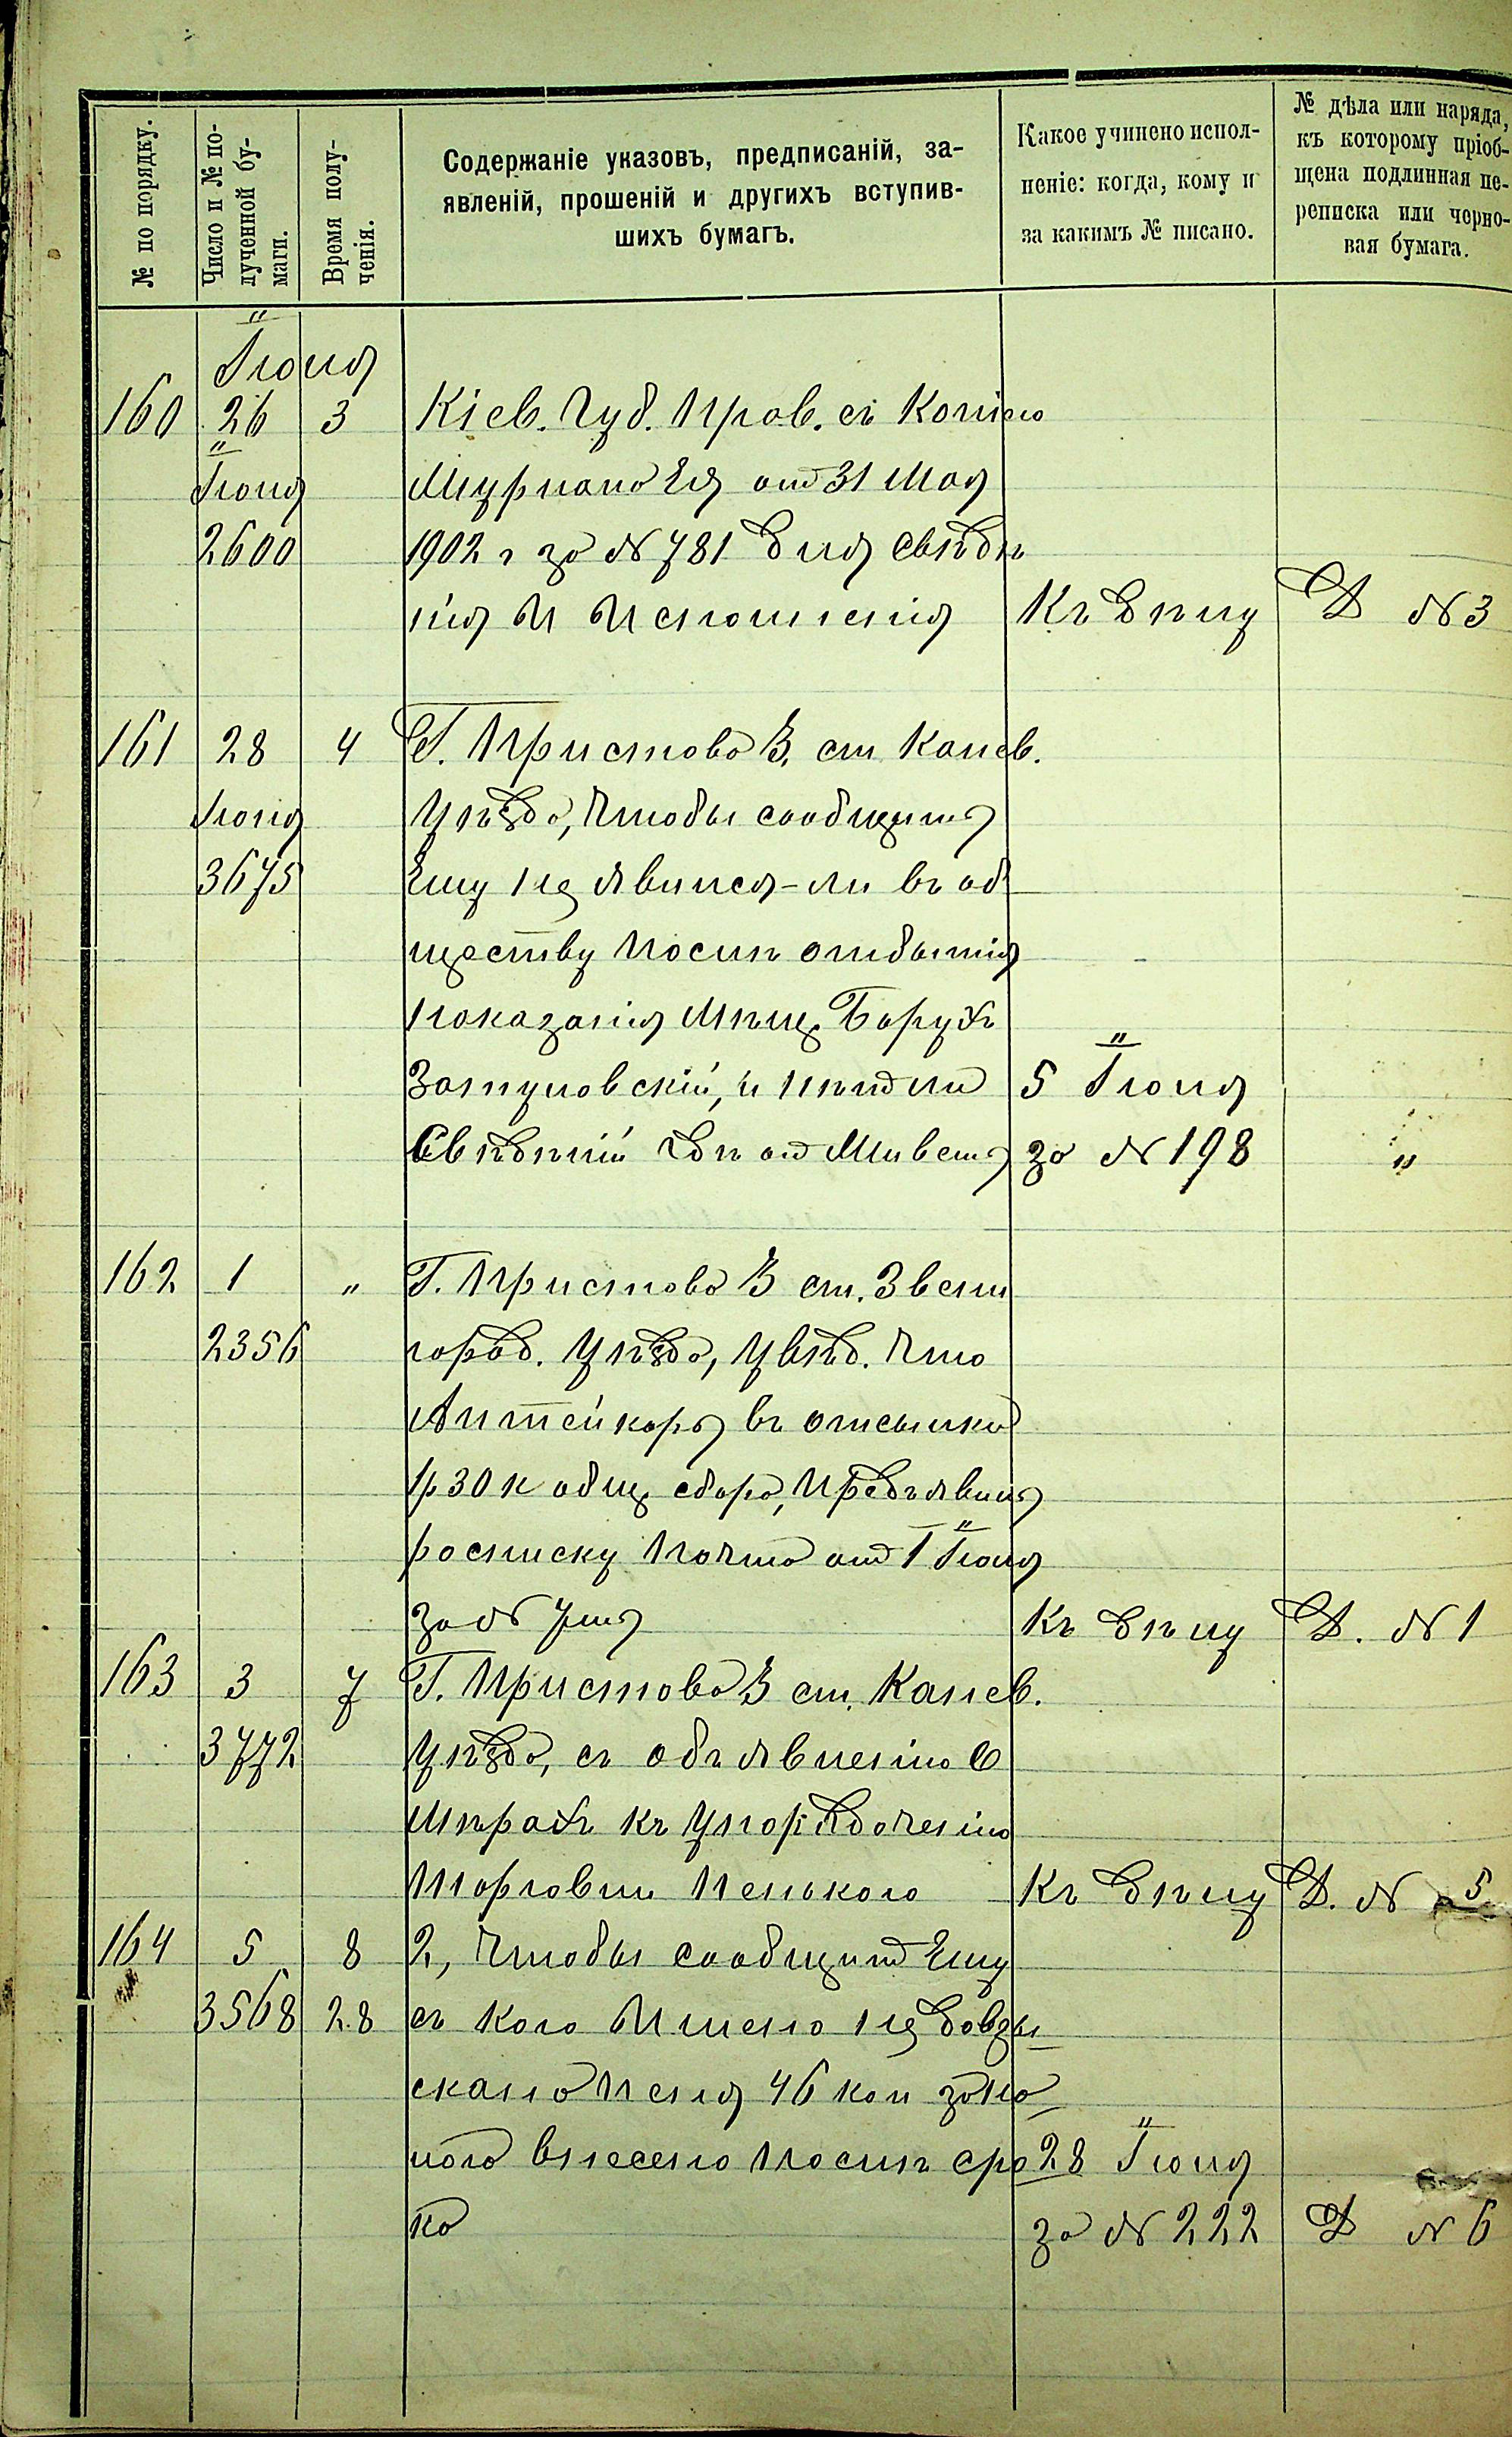 № по порядку.
Число и № по-
лученной бу-
маги.
Время полу-
ченія.
Содержаніе указовъ, предписаній, за-
явленій, прошеній и другихъ вступив-
шихъ бумагъ.
Какое учинено испол-
неніе: когда, кому и
за какимъ № писано.
№ дѣла или наряда,
къ которому пріоб-
щена подлинная пе-
реписка или черно-
вая бумага.
Іюня
160 26 3 Кіев. Губ. Прав. съ Копіею
Іюня Журнала Ея от 31 Мая
2600 1902 г за № 781 для свѣдѣ
нія и исполненія Къ дѣлу Д № 3
161 28 4 Г. Пристава 3, ст. Канев.
Іюня Уѣзда, чтобы сообщить
3675 Ему не явился-ли въ об
ществу послѣ отбытія
наказанія Мѣщ. Борухъ
Затуловскій, и нѣт ли 5 Іюня
Свѣдѣній гдѣ он за № 198 "
162 1 " Г. Пристава 3 ст. Звени
2356 город. Уѣзда, увѣд. что
въ отсылкѣ
1 р 30 к общ сбора, предъявил
росписку почт от 1 Іюня
за № Къ дѣлу Д. № 1
163 3 7 Г. Пристава 3 ст. Канев.
3772 Уѣзда, съ объявленію О
Мѣрахъ къ Упорядоченію
Торговли Пенькою Къ дѣлу Д. № 5
164 5 8 2, чтобы сообщит Ему
3568 28 съ кого именно недовзы
скано пеня 46 коп
внесено послѣ сро 28 Іюня
ка за № 222 Д № 6